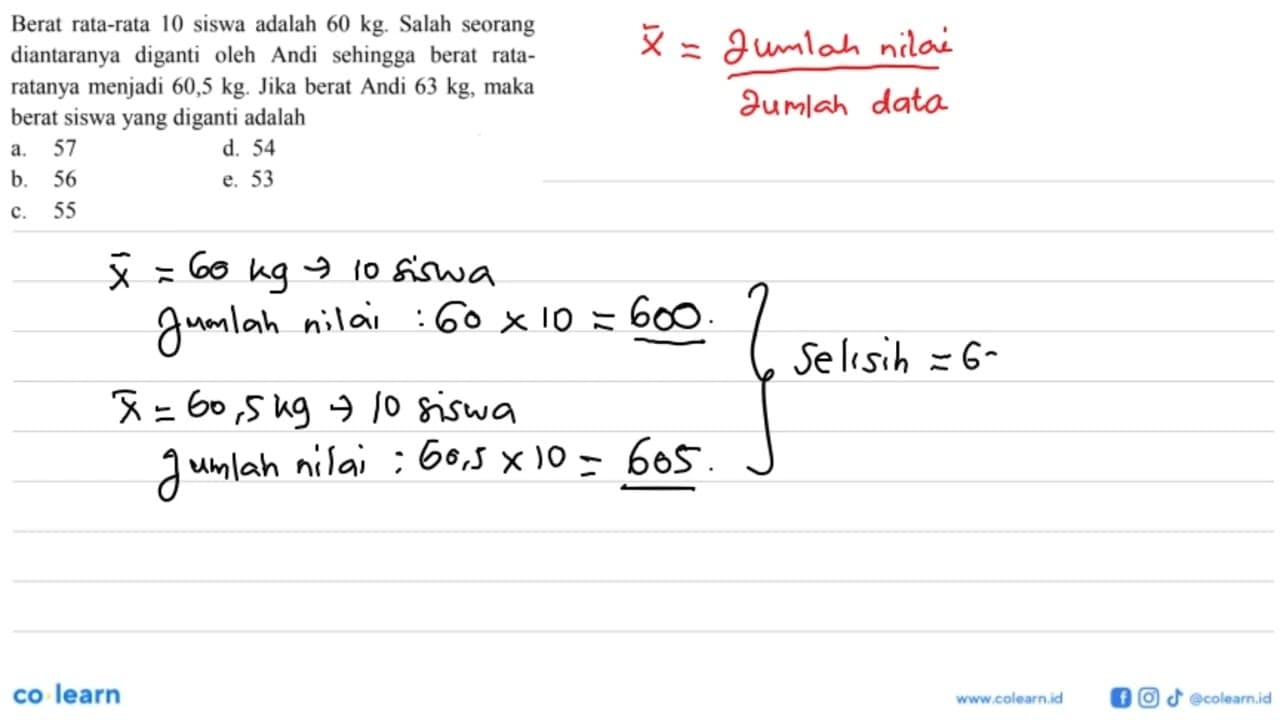 Berat rata-rata 10 siswa adalah 60 kg. Salah seorang
diantaranya diganti oleh Andi sehingga berat rata-
ratanya menjadi 60,5 kg. Jika berat Andi 63 kg, maka
berat siswa yang diganti adalah
a. 57 d. 54
b. 56 e. 53
c. 55
x̄ = Jumlah nilai
Jumlah data
x̄ = 60 kg → 10 siswa
Jumlah nilai : 60 × 10 = 600.
x̄ = 60,5 kg → 10 siswa
Jumlah nilai : 60,5 × 10 = 605.
Selisih = 6-
co learn
www.colearn.id @colearn.id